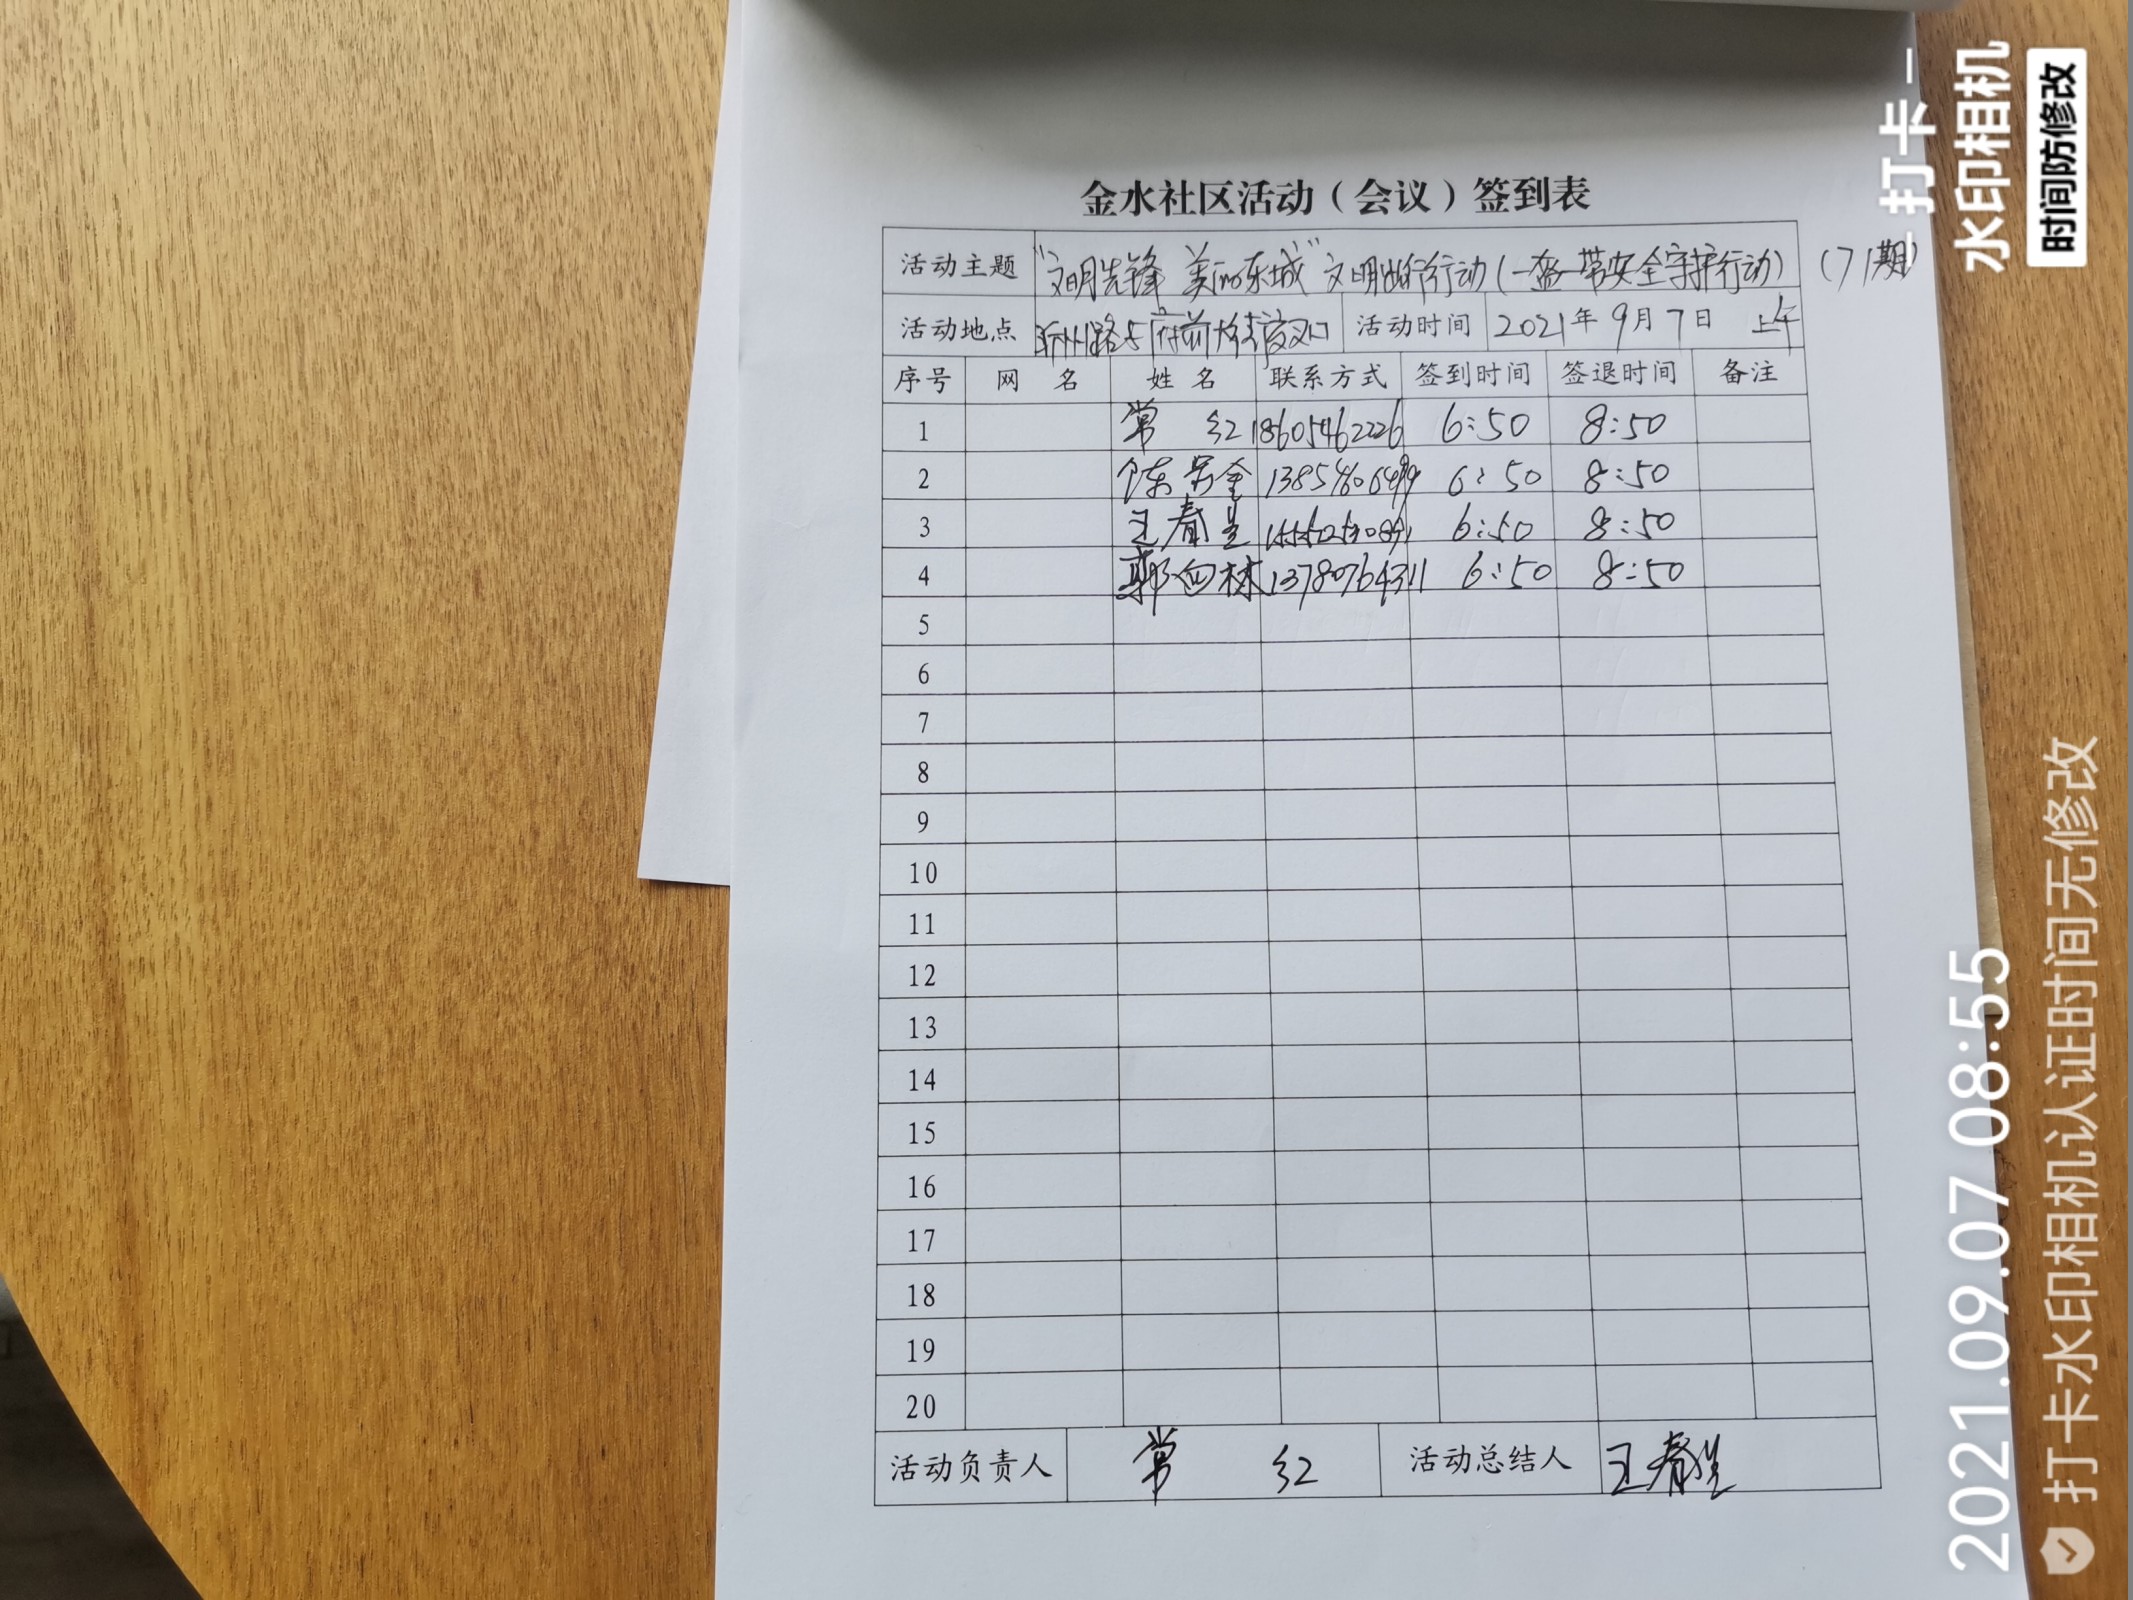 金水社区活动（会议）签到表
活动主题 “文明先锋 美丽东城”文明出行行动（一盔一带安全守护行动）（71期）
活动地点 沂州路与府前大街交叉口 活动时间 2021年9月7日 上午
序号 网 名 姓 名 联系方式 签到时间 签退时间 备注
1 常 红 18605462226 6:50 8:50
2 陈 全 6:50 8:50
3 王春 6:50 8:50
4 郭向林 13780764311 6:50 8:50
5
6
7
8
9
10
11
12
13
14
15
16
17
18
19
20
活动负责人 常 红 活动总结人 王春
打卡
水印相机
时间防修改
2021.09.07 08:55
打卡水印相机认证时间无修改